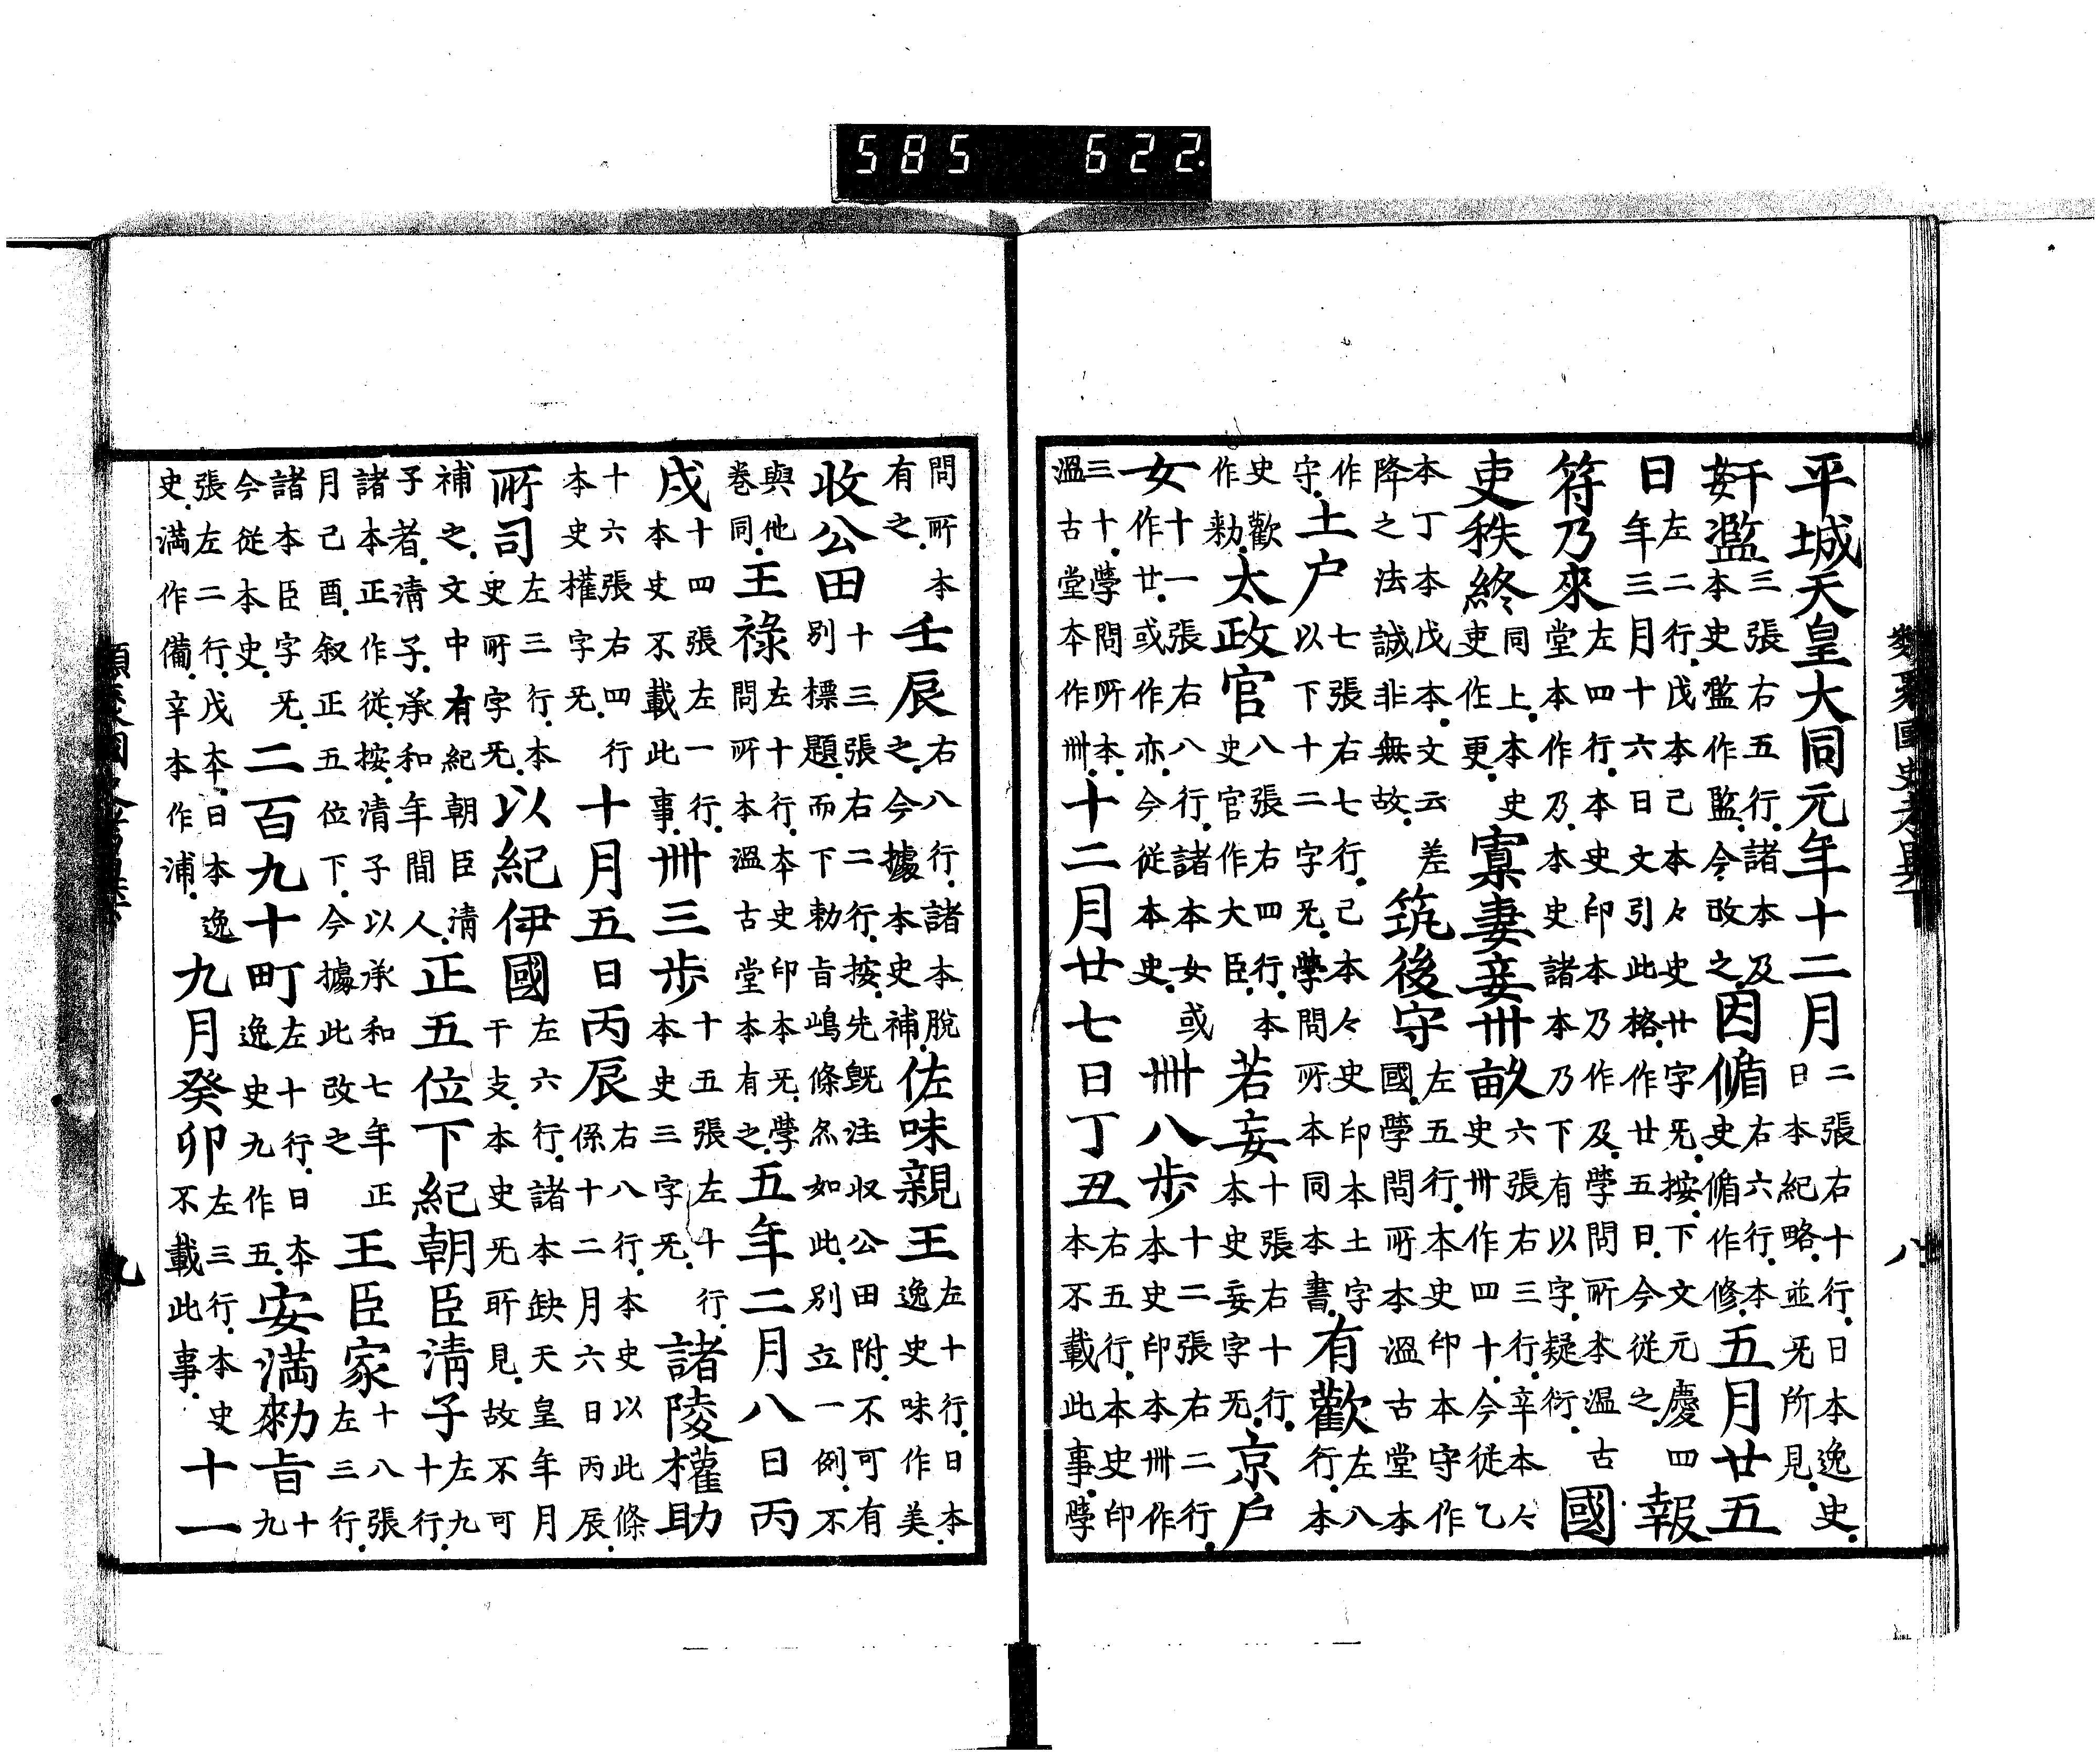 類聚國史考異 八
平城天皇大同元年十二月二張右十行日本逸史日本紀略並旡所見
姧濫三張右五行諸本及本史濫作監今改之因循右六行本史循作修五月廿五
日左二行戊本己本々史廿字旡按下文元慶四年三月十六日文引此格作廿五日今従之報
符乃來左四行本史印本乃作及學問所本温古堂本作乃本史諸本乃下有以字疑衍國
吏秩終同上本史吏作更寡妻妾卅畝六張右三行辛本々史卅作四十今従乙
本丁本戊本文云差降之法誠非無故筑後守左五行本史印本守作國學問所本温古堂本
作守土户七張右七行己本々史印本土字以下十二字旡學問所本同本書有歡左八行本
史歡作勑太政官八張右四行本史官作大臣若妄十張右十行本史妄字旡京户
女十一張右八行諸本女或作廿或作亦今従本史卅八歩十二張右二行本史印本卅作
三十學問所本温古堂本作卅十二月廿七日丁丑右五行本史印本不載此事學
問所本有之壬辰右八行諸本脱之今據本史補佐味親王左十行日本逸史味作美
收公田十三張右二行按先旣注収公田附不可有別標題而下勅旨嶋條尒如此別立一例不
與他巻同王祿左十行本史印本旡學問所本温古堂本有之五年二月八日丙
戌十四張左一行本史不載此事卅三歩十五張左十行本史三字旡諸陵權助
十六張右四行本史權字旡十月五日丙辰右八行本史以此條係十二月六日丙辰
所司左三行本史所字旡以紀伊國左六行諸本缺天皇年月干支本史旡所見故不可
補之文中有紀朝臣清子者清子承和年間人正五位下紀朝臣清子左九十行
諸本正作従按清子以承和七年正月己酉叙正五位下今據此改之王臣家十八張左三行
諸本臣字旡今従本史二百九十町左十行日本逸史九作五安満勑旨十九
張左二行戊本日本逸史満作備辛本作浦九月癸卯左三行本史不載此事十一
九
585 622